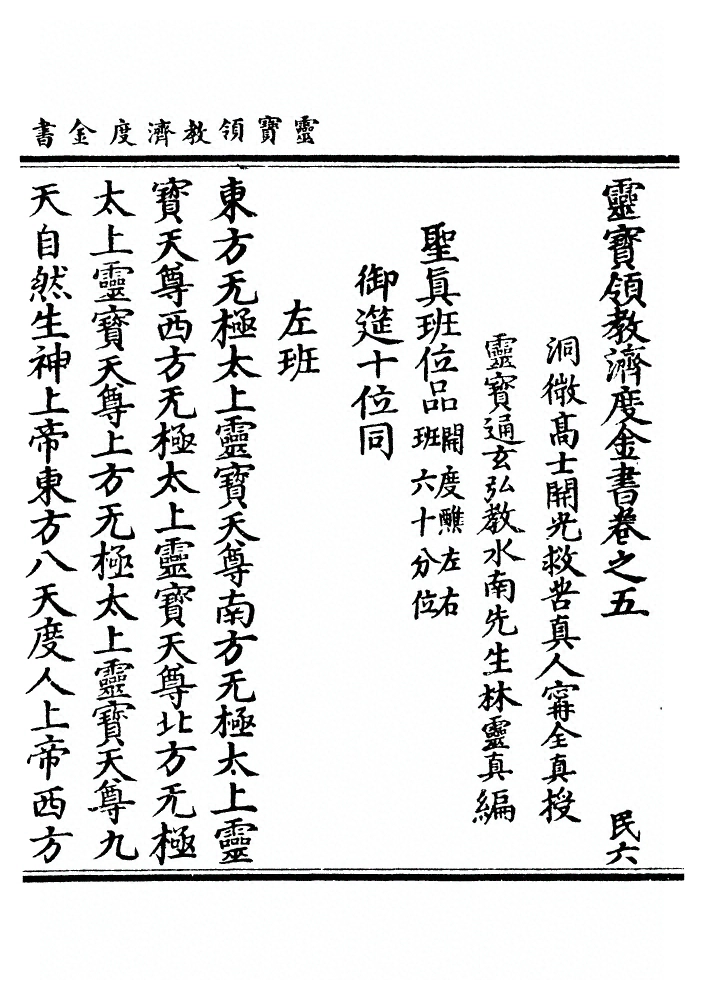 靈寶領教濟度金書
靈寶領教濟度金書卷之五　民六
洞微高士開光救苦真人甯全真授
靈寶通玄弘教水南先生林靈真編
聖真班位品開度醮左右班六十分位
御筵十位同
左班
東方无極太上靈寶天尊南方无極太上靈
寶天尊西方无極太上靈寶天尊北方无極
太上靈寶天尊上方无極太上靈寶天尊九
天自然生神上帝東方八天度人上帝西方